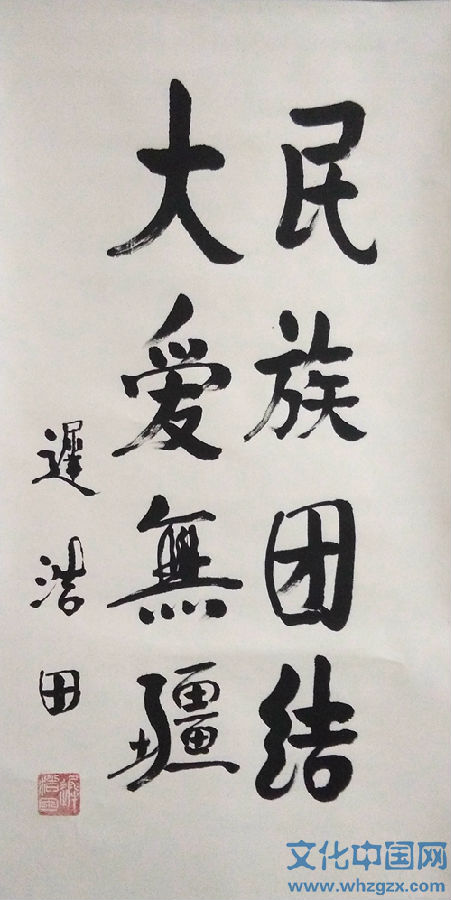 民族团结
大爱無疆
遲浩田
文化中国网
www.whzgzx.com